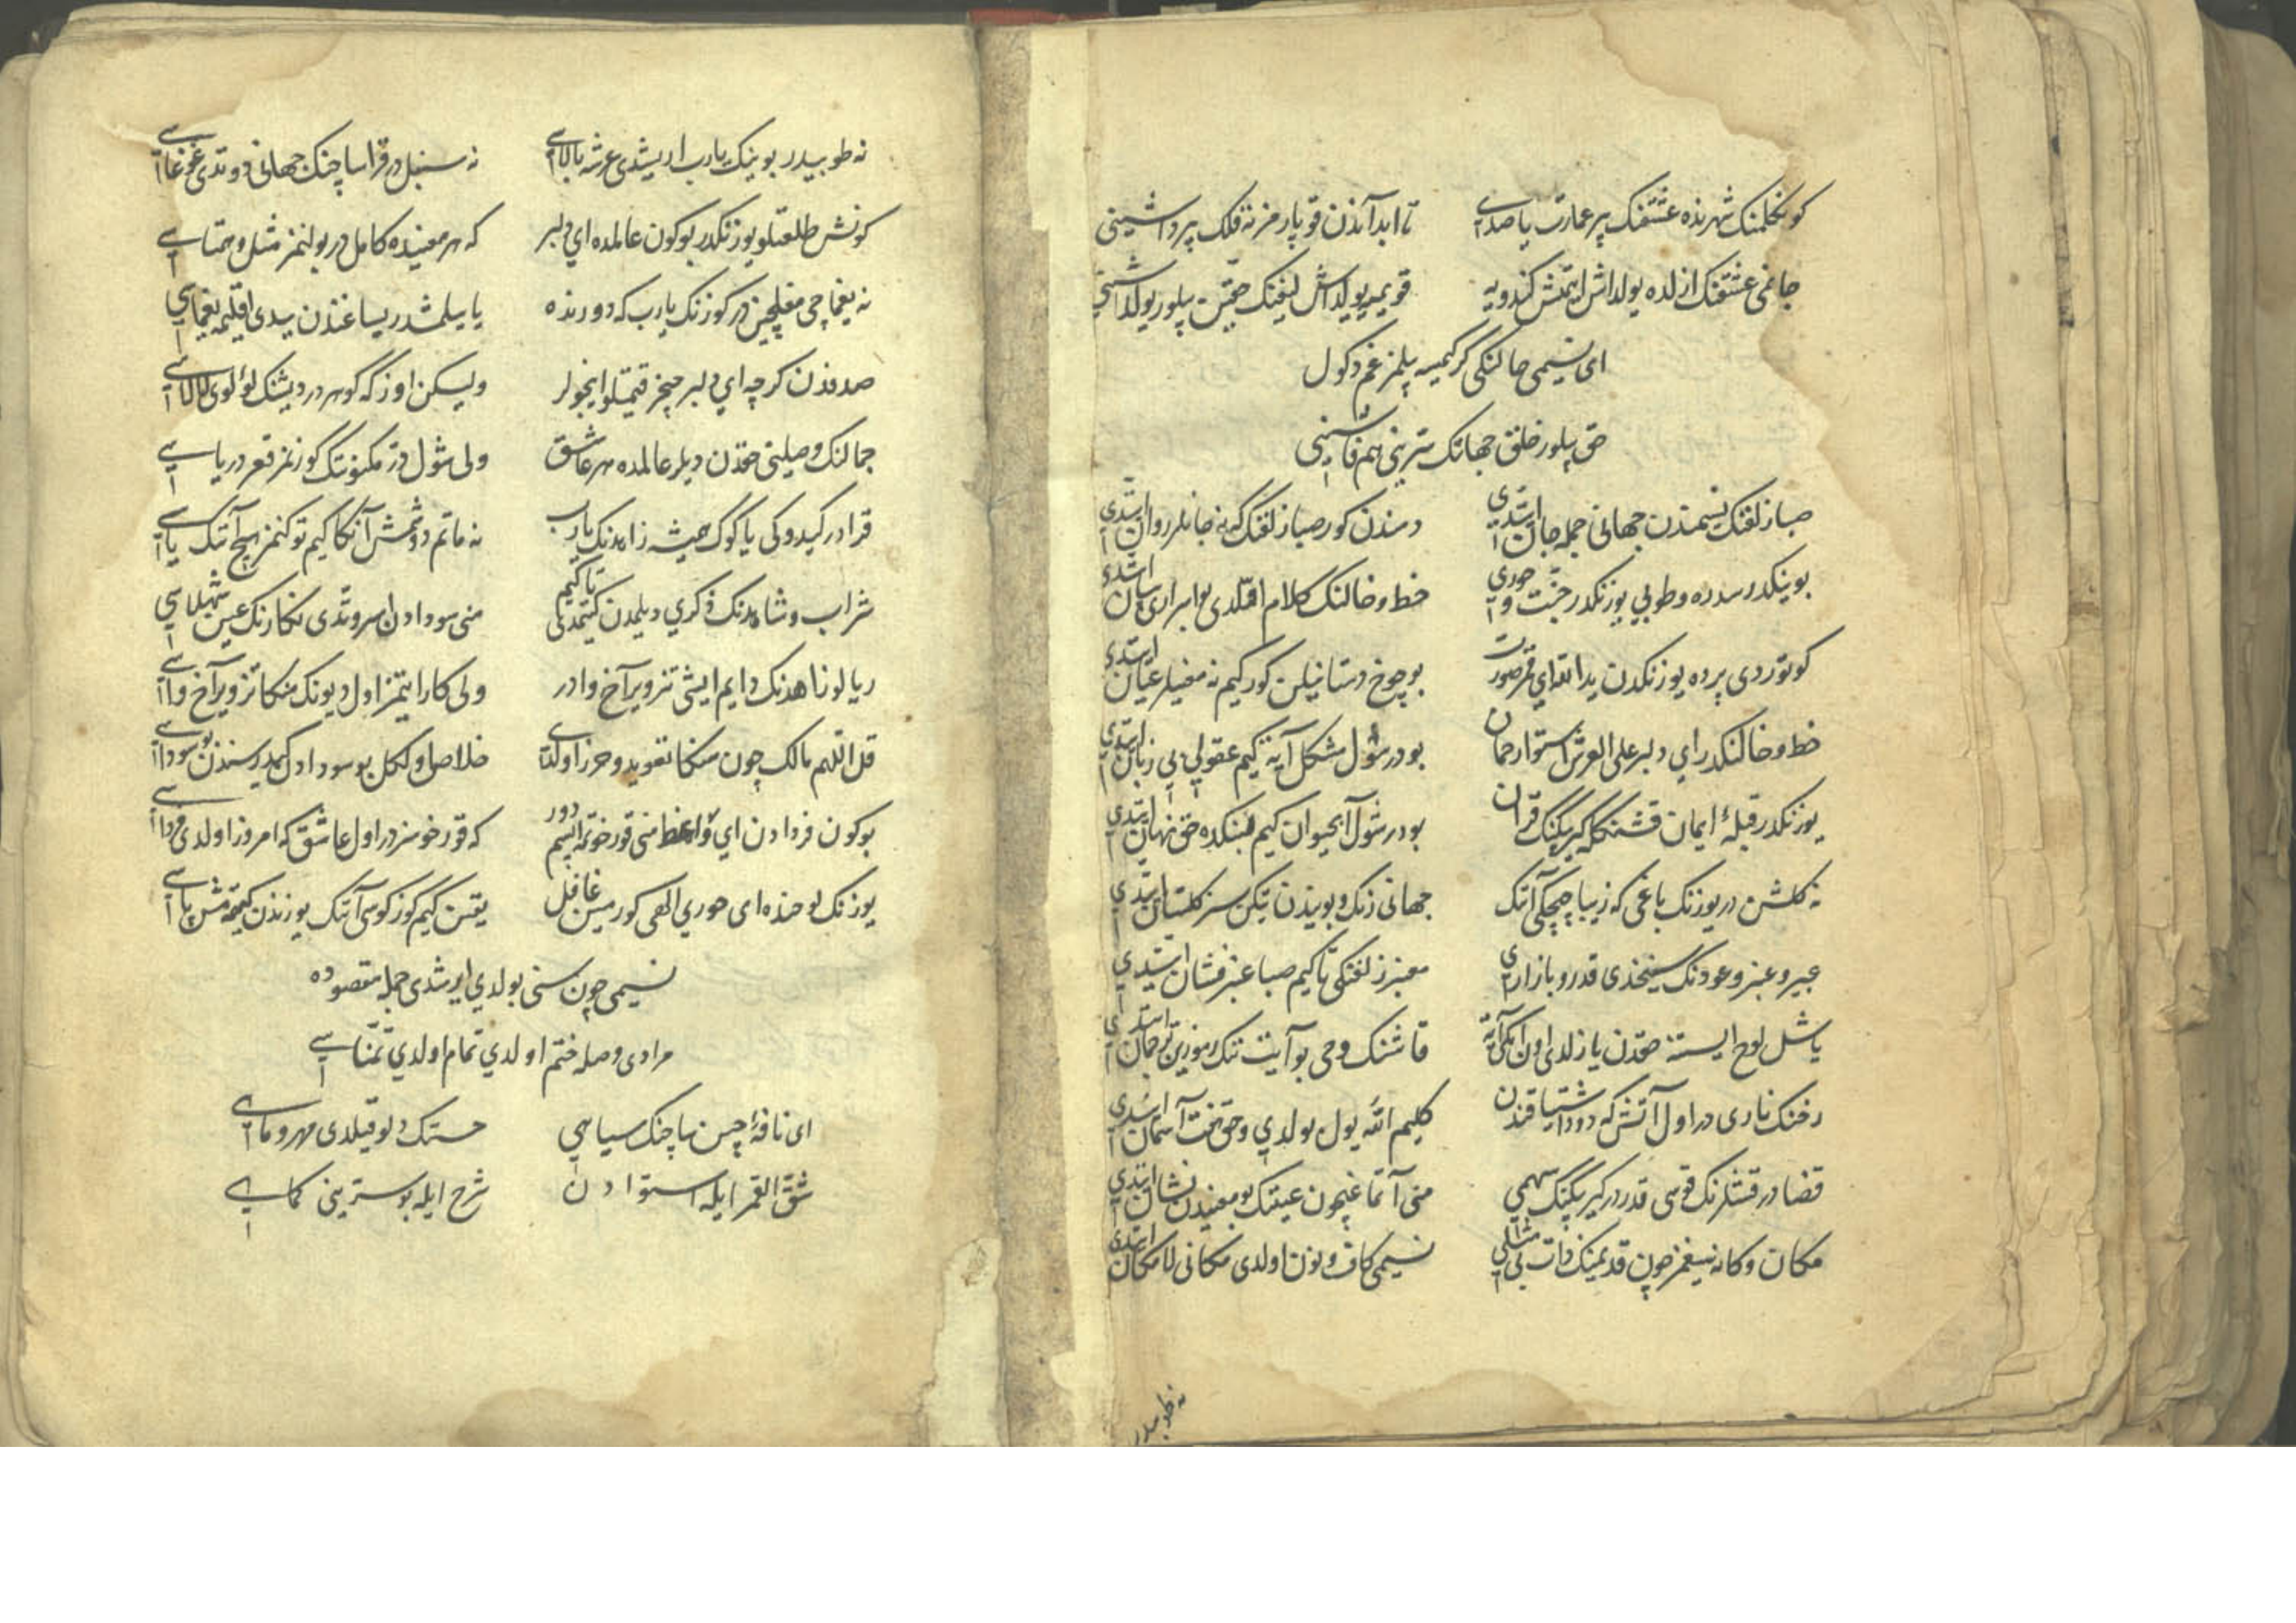 کوکلمنک شهرنده عشقنک پر عمارت یاصدی تا ابد آندن قوپارمز نه فلک پرداشینی
جانمی عشقنک ازلده یولداش ایتمش کندویه قویمیه یولداش لیغنک حقین بیلور یولداشنی
ای نسیمی حالنکی گر کیمسه بیلمز غم دکول
حق بیلور خلق جهانک سرینی هم فاشینی
صبا زلفنک نسیمندن جهانی جمله جان ایتدی دمندن کور صبا زلفنک که نه جانلر روان ایتدی
بوینکدر سدره و طوبی یوزنکدر جنت و حوری خط و خالنک کلام الله بو اسراری بیان ایتدی
کوتوردی پرده یوزنکدن یدالله ای قمر صورت بو چوخ دستانیلن کور کیم نه مغیلر عیان ایتدی
خط و خالنکدر ای دلبر علی العرش استوا رحمان بودر شول مشکل آیه کیم عقولی بی زبان ایتدی
یوزنکدر قبلهٔ ایمان قشنکله کیرپکنک قرآن بودر شول آبحیوان کیم لبنکده حق نهان ایتدی
نه کلشن در یوزنک باغی که زیبا چیچکی آنک جهانی رنک و بویندن تیکن سز کلستان ایتدی
عبیر و عنبر و عودنک سینخدی قدر و بازاری معنبر زلفنکی تا کیم صبا عنبر فشان ایتدی
یاشل لوح ایسته حقدن یازلدی اون ایکی آیه قاشنک وحی بو آیت تنک رموزین ترجمان ایتدی
رخنک ناری در اول آتش که دود اشتیاقندن کلیم الله یول بولدی و حق تخت آسمان ایتدی
قضادر قشلرنک قوسی قدردر کیرپیکنک سهمی منی آتماغیچون عینک بو معنیدن نشان ایتدی
مکان و کانه سیغمز چون قدیمنک ذات بی مثلی نسیمی کاف و نون اولدی مکانی لامکان ایتدی
نه طوبیدر
نه طوبیدر بوینک یارب ایریشدی عرشه بالاسی نه سنبل در قرا ساچنک جهانی دوتدی غوغاسی
کونش طلعتلو یوزنکدر بوکون عالمده ای دلبر که هر معنیده کامل در بولنمز مثل و همتاسی
نه یغماچی مغلچین در کوزنک یارب که دورنده یایلمشدر یساغندن یدی اقلیمه یغماسی
صدفدن کرچه ای دلبر چیخر قیمتلو اینجولر ولیکن اوزکه گوهر در دیشنک لؤلوی لالاسی
جمالنک وصلینی حقدن دیلر عالمده هر عاشق ولی شول در مکنونک گوزنمز قعر دریاسی
قرادر کیدوکی یا گوک همیشه زاهدنک یارب نه ماتم دوشمش آنکا کیم توکنمز هیچ آنک یاسی
شراب و شاهدنک ذکری دیلمدن کیتمدی تا کیم منی سودادن اسروتدی نکارنک عین شهلاسی
ریالو زاهدنک دایم ایشی تزویر آخ وادر ولی کار ایتمز اول دیونک منکا تزویر آخ واسی
قل اللهم مالک چون منکا تعوید و حرز اولدی خلاص اولکل بو سودادن کمدر سندن بو سوداسی
بوکون فردادن ای واعظ منی قورخوتمه اپسم دور که قورخوسزدر اول عاشق که امروز اولدی فرداسی
یوزنک لوحنده ای حوری الهی کورمین غافل یقین کیم کوز کوسی آنک یوزندن کیتمه مش پاسی
نسیمی چون سنی بولدی ایرشدی جمله مقصوده
مرادی وصله ختم اولدی تمام اولدی تمناسی
ای نافهٔ چین ساچنک سیاهی حسنک دلو قیلدی مهر و ماهی
شق القمر ایله استوادن شرح ایله بو سترینی کماهی